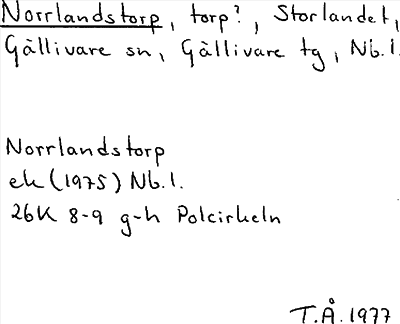 Norrlandstorp, torp?, Storlandet,
Gällivare sn, Gällivare tg, Nb.l.
Norrlandstorp
ek (1975) Nb.l.
26K 8-9 g-h Polcirkeln
T.Å. 1977